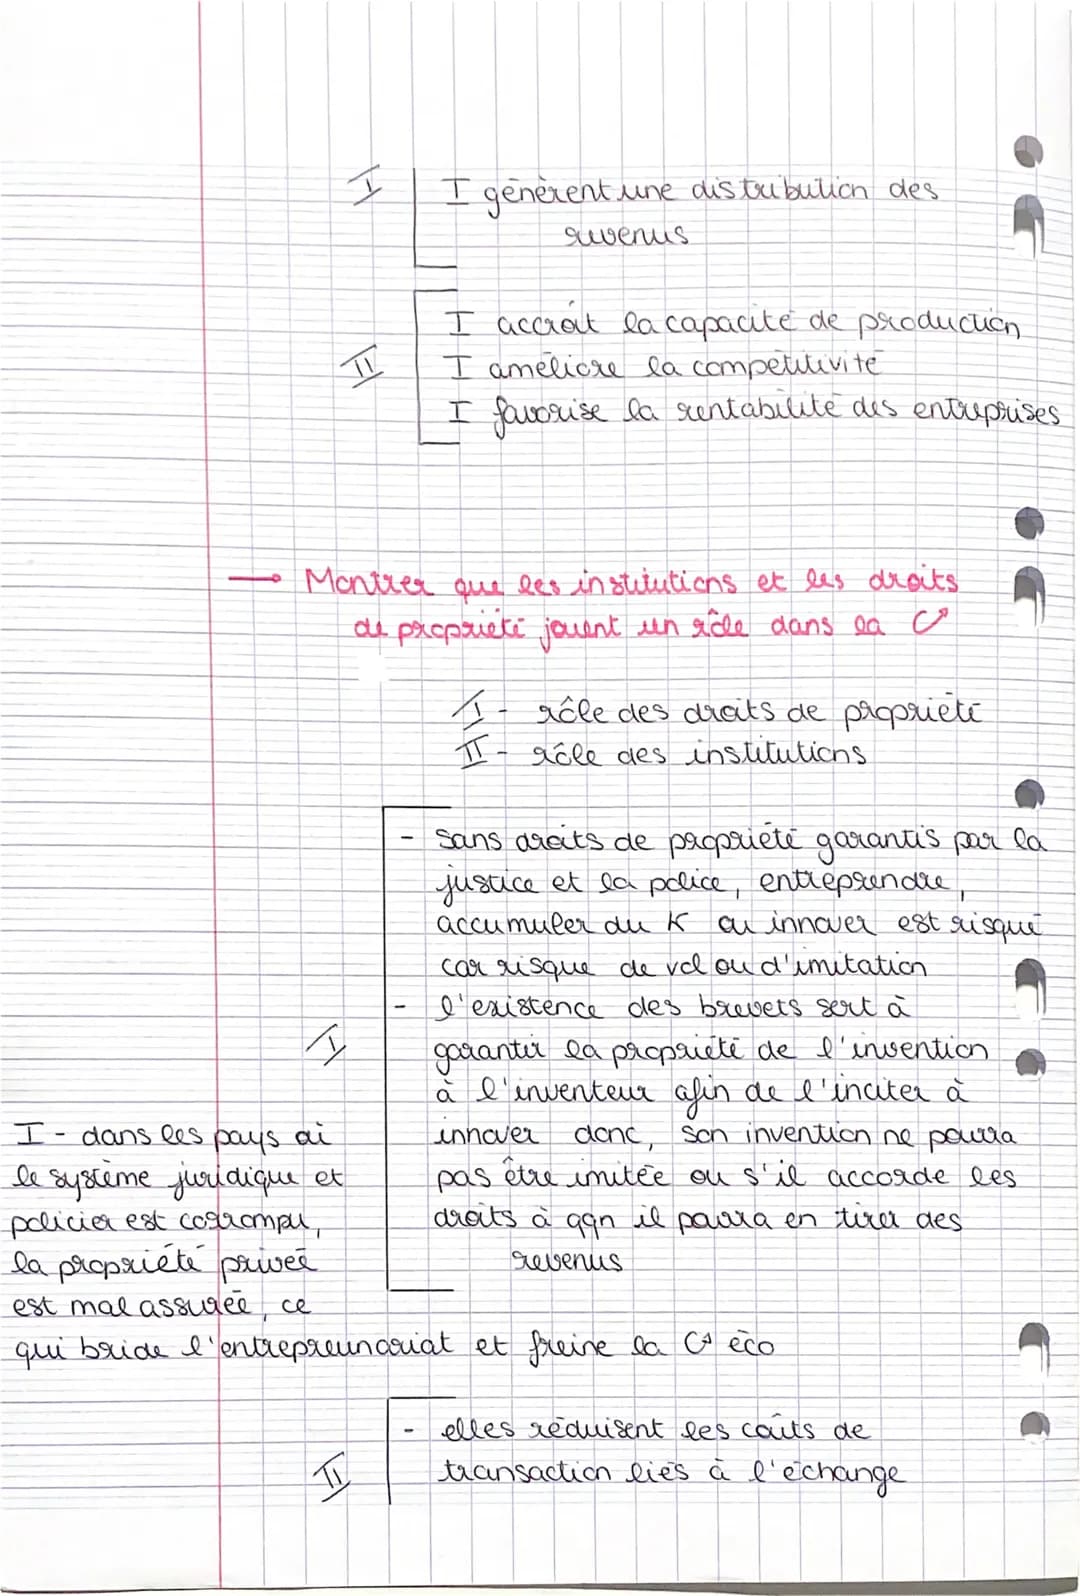 I
I génèrent une distribution des
revenus
II
I accroît la capacité de production
I améliore la compétitivité
I favorise la rentabilité des entreprises
→ Montrer que les institutions et les droits
de propriété jouent un rôle dans la C↗
I - rôle des droits de propriété
II - rôle des institutions
I
- Sans droits de propriété garantis par la
justice et la police, entreprendre,
accumuler du K ou innover est risqué
car risque de vol ou d'imitation
- l'existence des brevets sert à
garantir la propriété de l'invention
à l'inventeur afin de l'inciter à
innover donc, son invention ne pourra
pas être imitée ou s'il accorde les
droits à qqn il pourra en tirer des
revenus
I - dans les pays où
le système juridique et
policier est corrompu,
la propriété privée
est mal assurée, ce
qui bride l'entrepreunariat et freine la C↗ éco
II
- elles réduisent les coûts de
transaction liés à l'échange